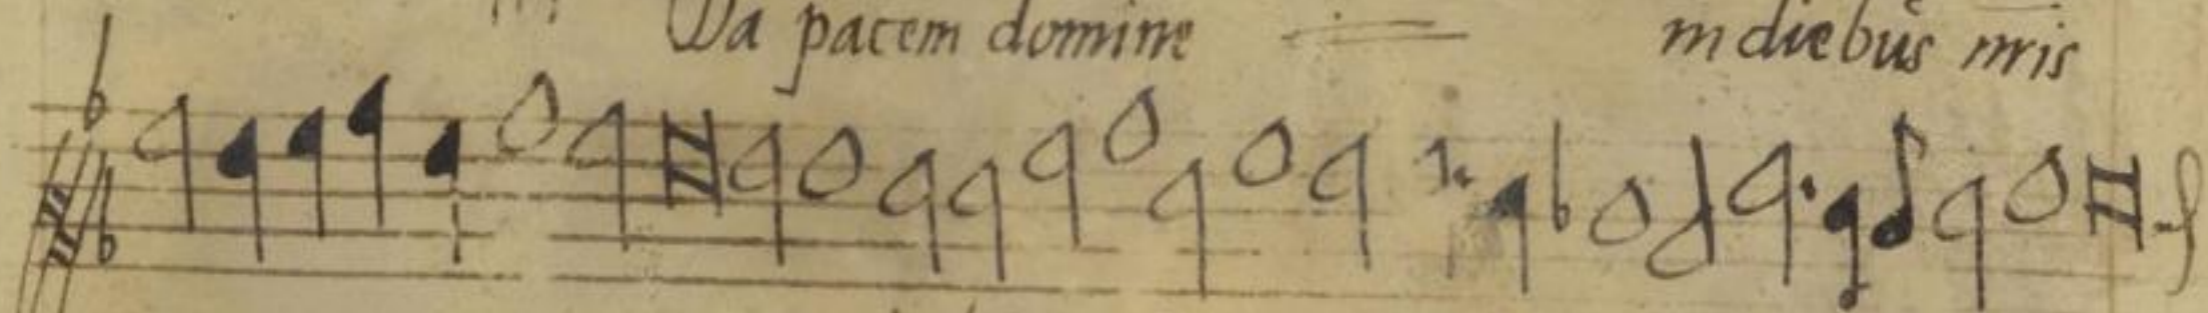 Da pacem domine in diebus nris